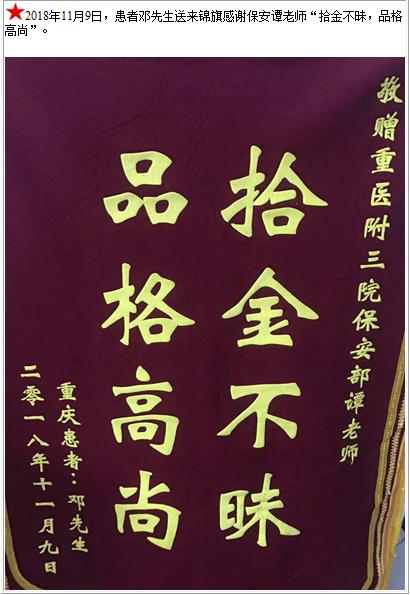 ★2018年11月9日，患者邓先生送来锦旗感谢保安谭老师“拾金不昧，品格
高尚”。
敬赠重医附三院保安部谭老师
拾金不昧
品格高尚
重庆患者：邓先生
二零一八年十一月九日